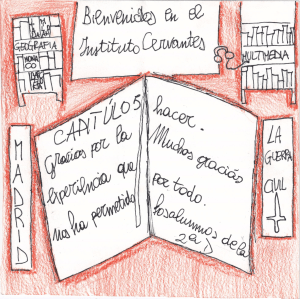 Bienvenidos en el
Instituto Cervantes
GEOGRAFIA
MULTIMEDIA
MADRID
CAPITULO 5
Gracias por la
experiencia que
nos ha permetido
hacer.
Muchas gracias
por todo.
Los alumnos de la
2ª
LA
GUERRA
CIVIL